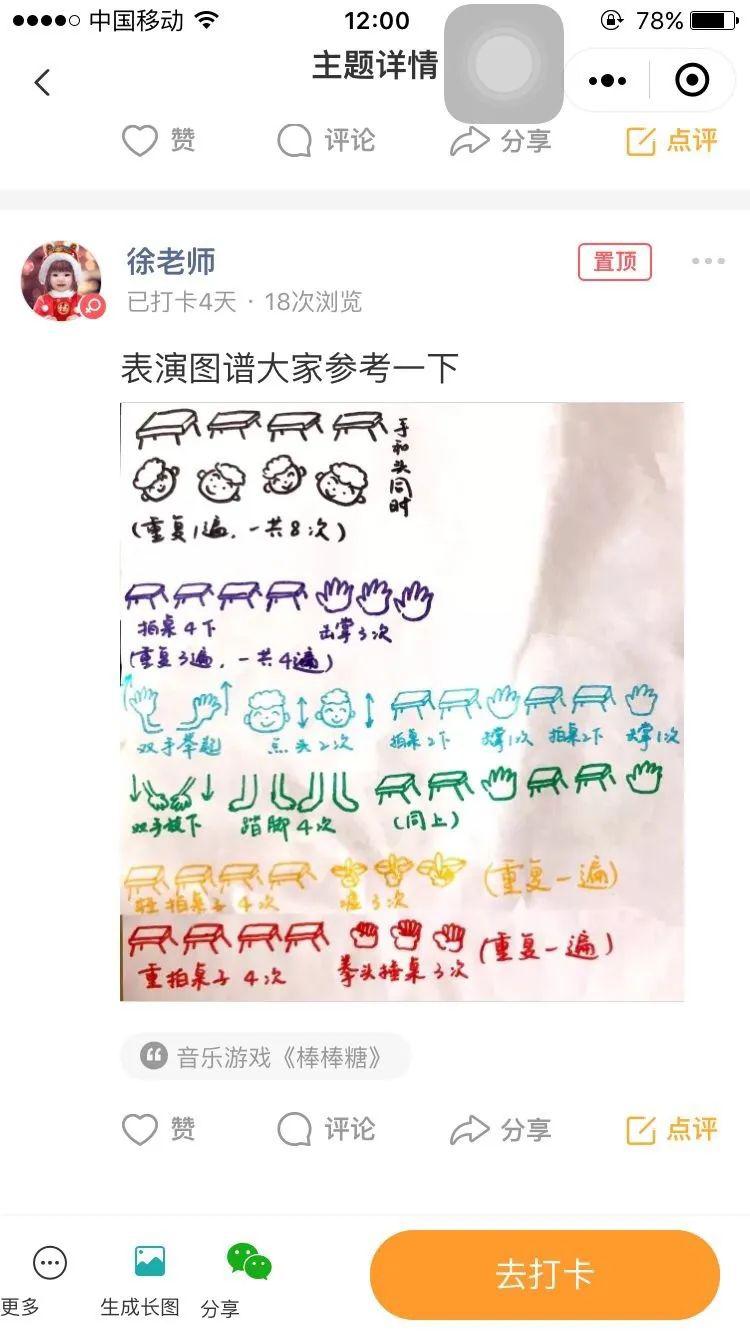 中国移动 12:00 78%
主题详情
赞 评论 分享 点评
徐老师 置顶
已打卡4天 · 18次浏览
表演图谱大家参考一下
手和头同时
(重复1遍，一共8次)
拍桌4下 击掌3次
(重复3遍，一共4遍)
双手举起 点头2次 拍桌2下 击掌1次 拍桌2下 击掌1次
双手放下 踏脚4次 (同上)
轻拍桌子4次 嘘3次 (重复一遍)
重拍桌子4次 拳头捶桌3次 (重复一遍)
音乐游戏《棒棒糖》
赞 评论 分享 点评
更多 生成长图 分享 去打卡